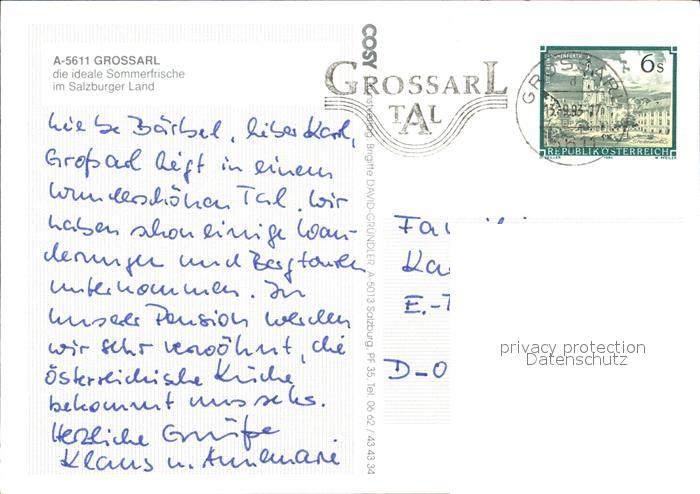 A-5611 GROSSARL
die ideale Sommerfrische
im Salzburger Land
Liebe Bärbel, lieber Karl,
Großarl liegt in einem
wunderschönen Tal. Wir
haben schon einige Wan-
derungen und Bergtouren
unternommen. In
unserer Pension werden
wir sehr verwöhnt, die
österreichische Küche
bekommt uns sehr.
Herzliche Grüße
Klaus u. Annemarie
COSY
Brigitte DAVID-GRÜNDLER, A-5013 Salzburg, PF 35, Tel. 06 62 / 43 43 34
GROSSARL
TAL
GROSSARL
6 s
REPUBLIK ÖSTERREICH
Fa
Ka
E.-T
D-0
privacy protection
Datenschutz